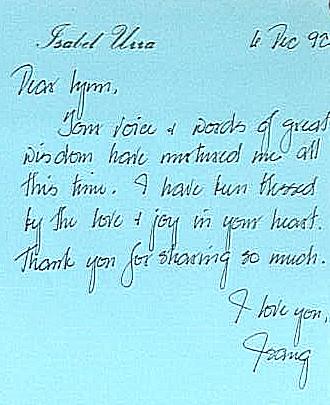 Isabel Urra
6 Dec 90
Dear Lynn,
Your voice & words of great
wisdom have nurtured me all
this time. I have been blessed
by the love & joy in your heart.
Thank you for sharing so much.
I love you,